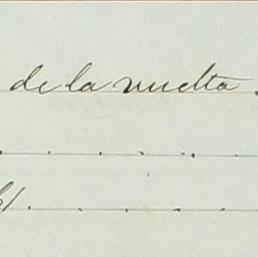 de la vuelta .
. . . . .
. . . . .